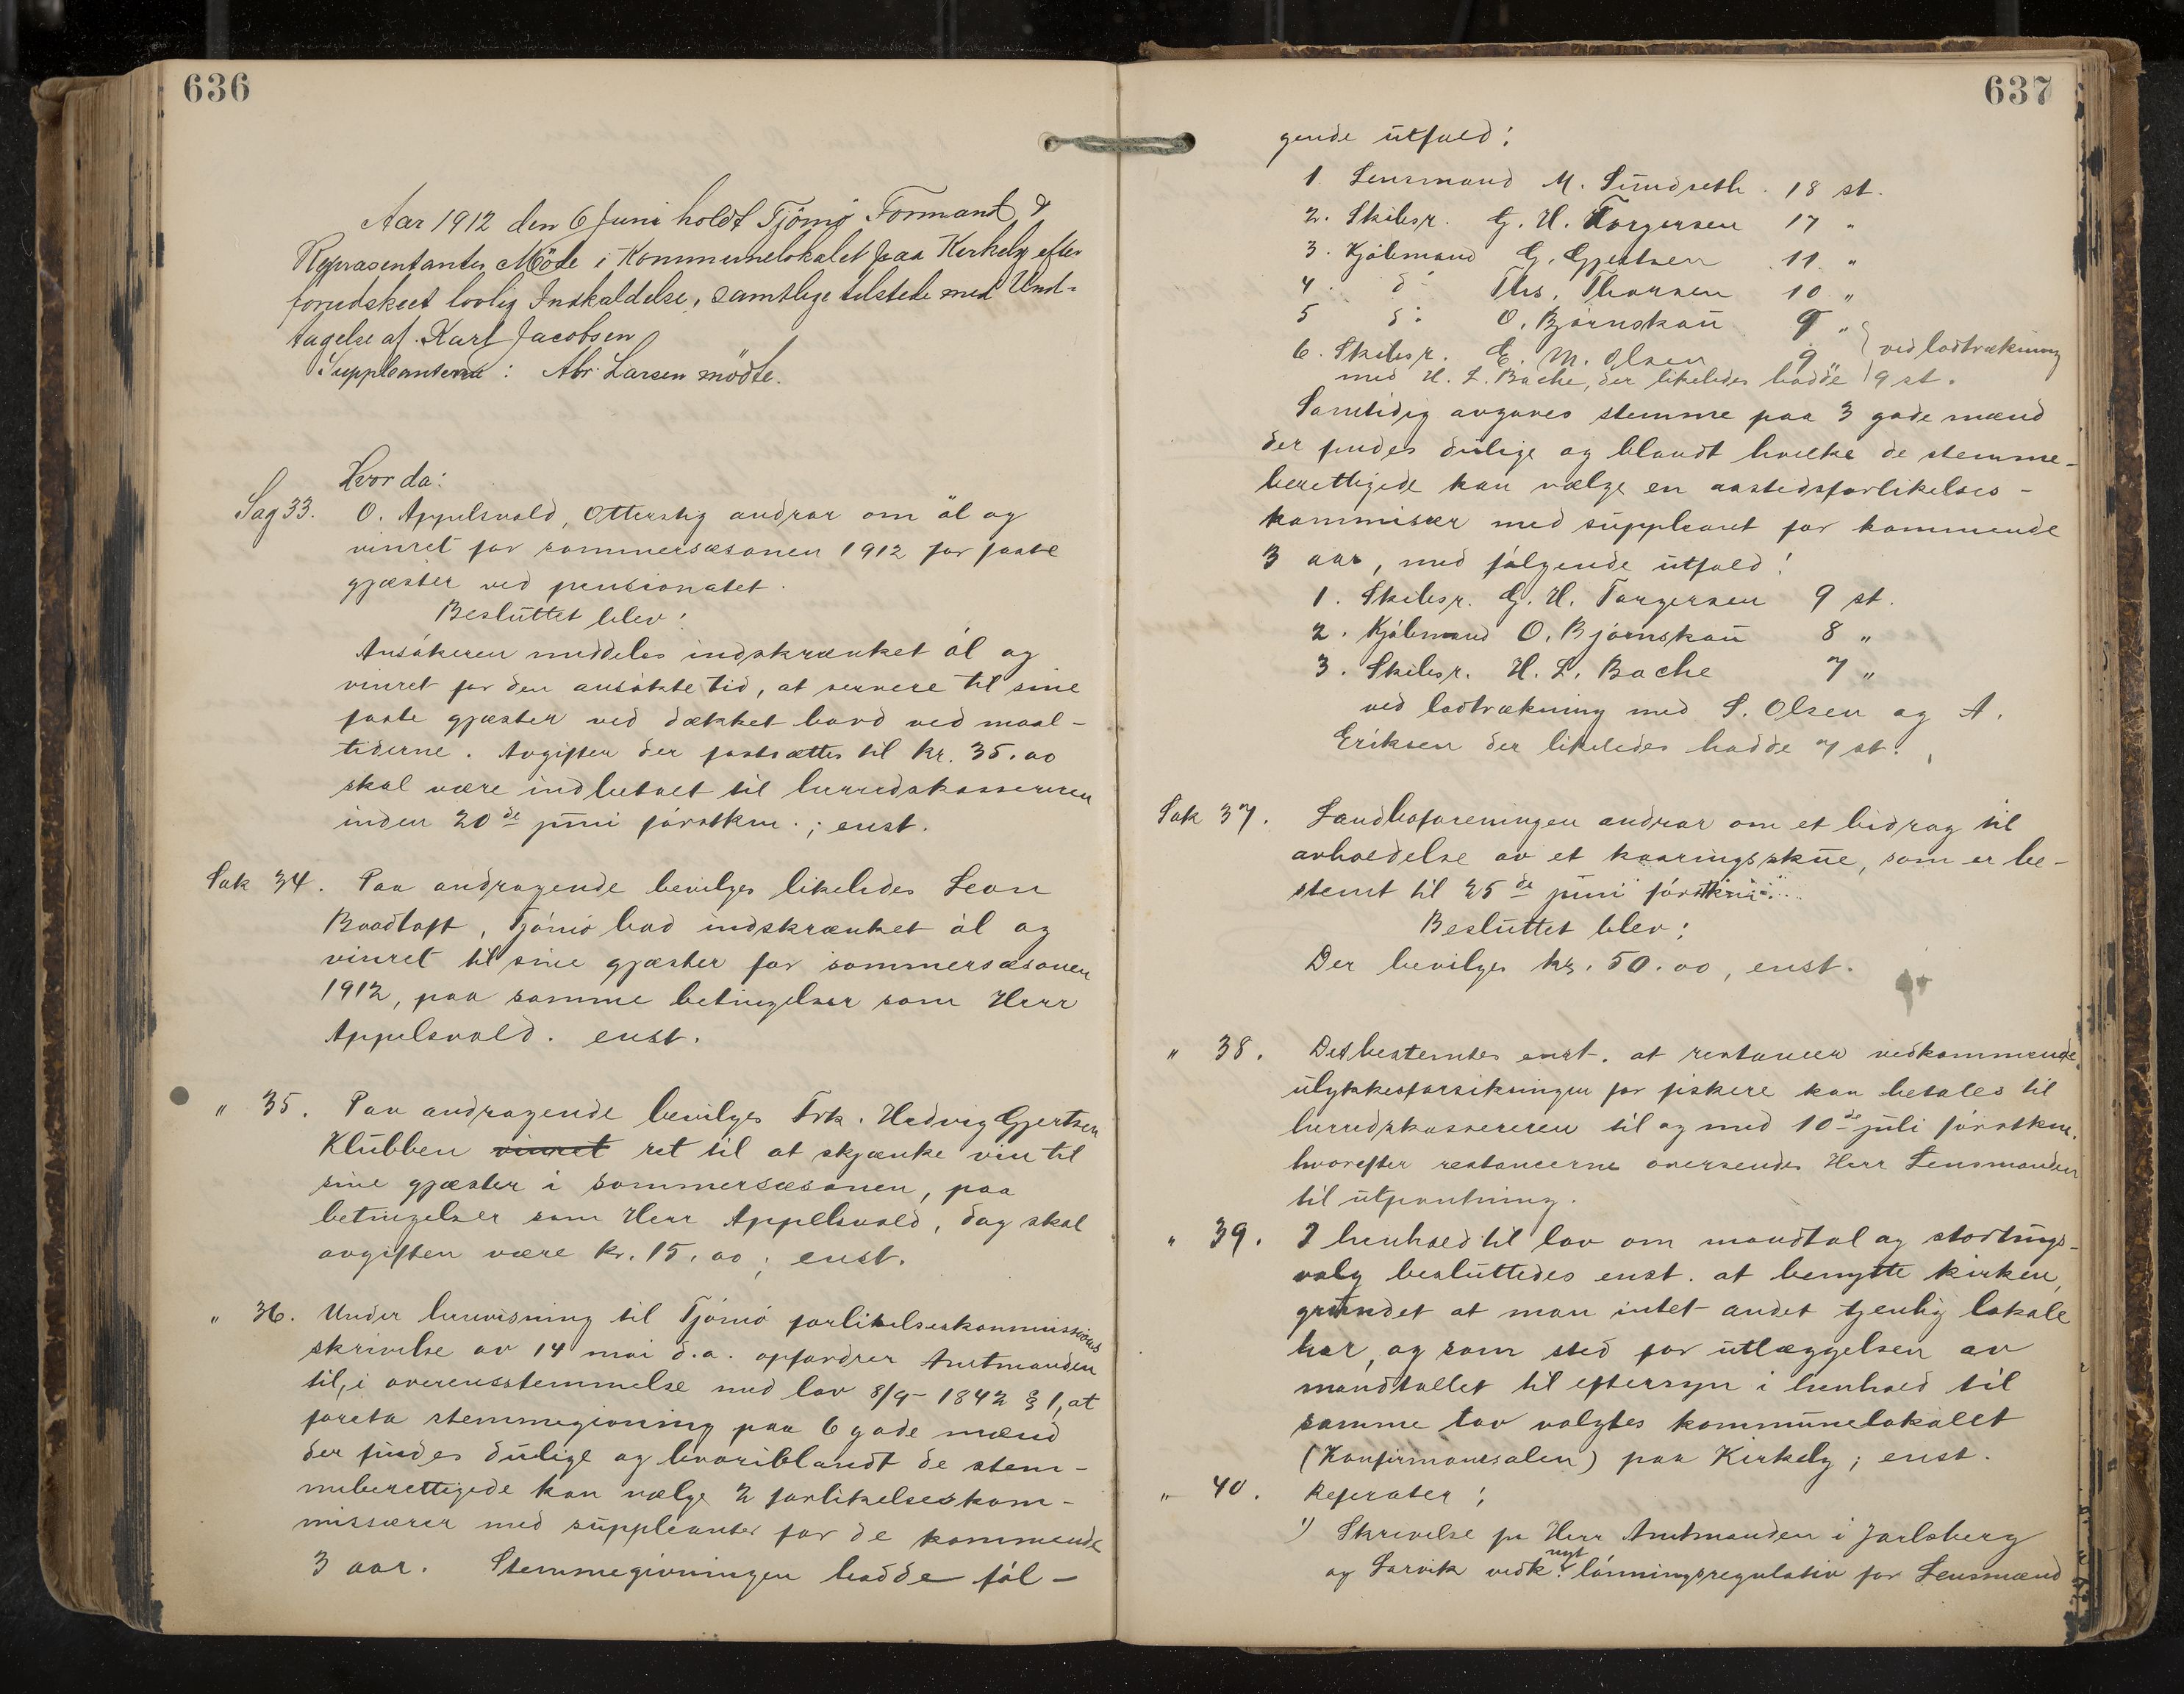 636
Aar 1912 den 6 Juni holdt Tjömö Formand &
Repræsentanter Möde i Kommunelokalet paa Kirkely efter
forudskeet lovlig Indkaldelse, samtlige tilstede med Und-
tagelse af Karl Jacobsen
Suppleanterne: Abr. Larsen mödte.
Hvor da:
Sag 33. O. Appelsvold, Otterstig andrar om öl og
vinret for sommersæsonen 1912 for faste
gjæster ved pensionatet.
Besluttet blev:
Ansökeren meddeles indskrænket öl og
vinret for den ansökte tid, at servere til sine
faste gjæster ved dækket bord ved maal-
tiderne. Avgiften der fastsættes til kr. 35.00
skal være indbetalt til herredskassereren
inden 20de juni förstkm.; enst.
Sak 34. Paa andragende bevilges likeledes Leon
Baadtoft, Tjömö bad indskrænket öl og
vinret til sine gjæster for sommersæsonen
1912, paa samme betingelser som Herr
Appelsvold. enst.
" 35. Paa andragende bevilges Frk. Hedvig Gjertsen
Klubben vinret ret til at skjænke vin til
sine gjæster i sommersæsonen, paa
betingelser som Herr Appelsvold, dog skal
avgiften være kr. 15.00; enst.
" 36. Under henvisning til Tjömö forlikelseskommissions
skrivelse av 14 mai d.a. opfordrer Amtmanden
til, i overensstemmelse med lov 8/9-1842 § 1, at
foreta stemmegivning paa 6 gode mænd
der findes dulige og hvoriblandt de stem-
meberettigede kan vælge 2 forlikelseskom-
missærer med suppleanter for de kommende
3 aar. Stemmegivningen hadde föl-
637
gende utfald:
1 Lensmand M. Sundseth. 18 st.
2. Skibsr. G. H. Torgersen 17 "
3. Kjöbmand G. Gjertsen 11 "
4. do Ths. Thorsen 10 "
5 do O. Björnskau 9 "
6. Skibsr. E. M. Olsen 9 " ved lodtrækning
med H. L. Bache, der likeledes hadde 9 st.
Samtidig avgaves stemme paa 3 gode mænd
der findes dulige og blandt hvilke de stemme-
berettigede kan vælge en aastedsforlikelses-
kommisær med suppleant for kommende
3 aar, med fölgende utfald:
1. Skibsr. G. H. Torgersen 9 st.
2. Kjöbmand O. Björnskau 8 "
3. Skibsr. H. L. Bache 7 "
ved lodtrækning med S. Olsen og A.
Eriksen der likeledes hadde 7 st.
Sak 37. Landboforeningen andrar om et bidrag til
avholdelse av et kaaringsskue, som er be-
stemt til 25de juni förstkm.
Besluttet blev:
Der bevilges kr. 50.00, enst.
" 38. Det bestemtes enst. at restancer vedkommende
ulykkesforsikringen for fiskere kan betales til
herredskassereren til og med 10de juli förstkm.
hvorefter restancerne oversendes Herr Lensmanden
til utpantning.
" 39. I henhold til lov om mandtal og stortings-
valg besluttedes enst. at benytte kirken,
grundet at man intet andet tjenlig lokale
har, og som sted for utlæggelsen av
mandtallet til eftersyn i henhold til
samme lov valgtes kommunelokalet
(Konfirmantsalen) paa Kirkely; enst.
" 40. Referater:
1) Skrivelse fr Herr Amtmanden i Jarlsberg
og Larvik vedk. nyt lönningsregulativ for Lensmænd